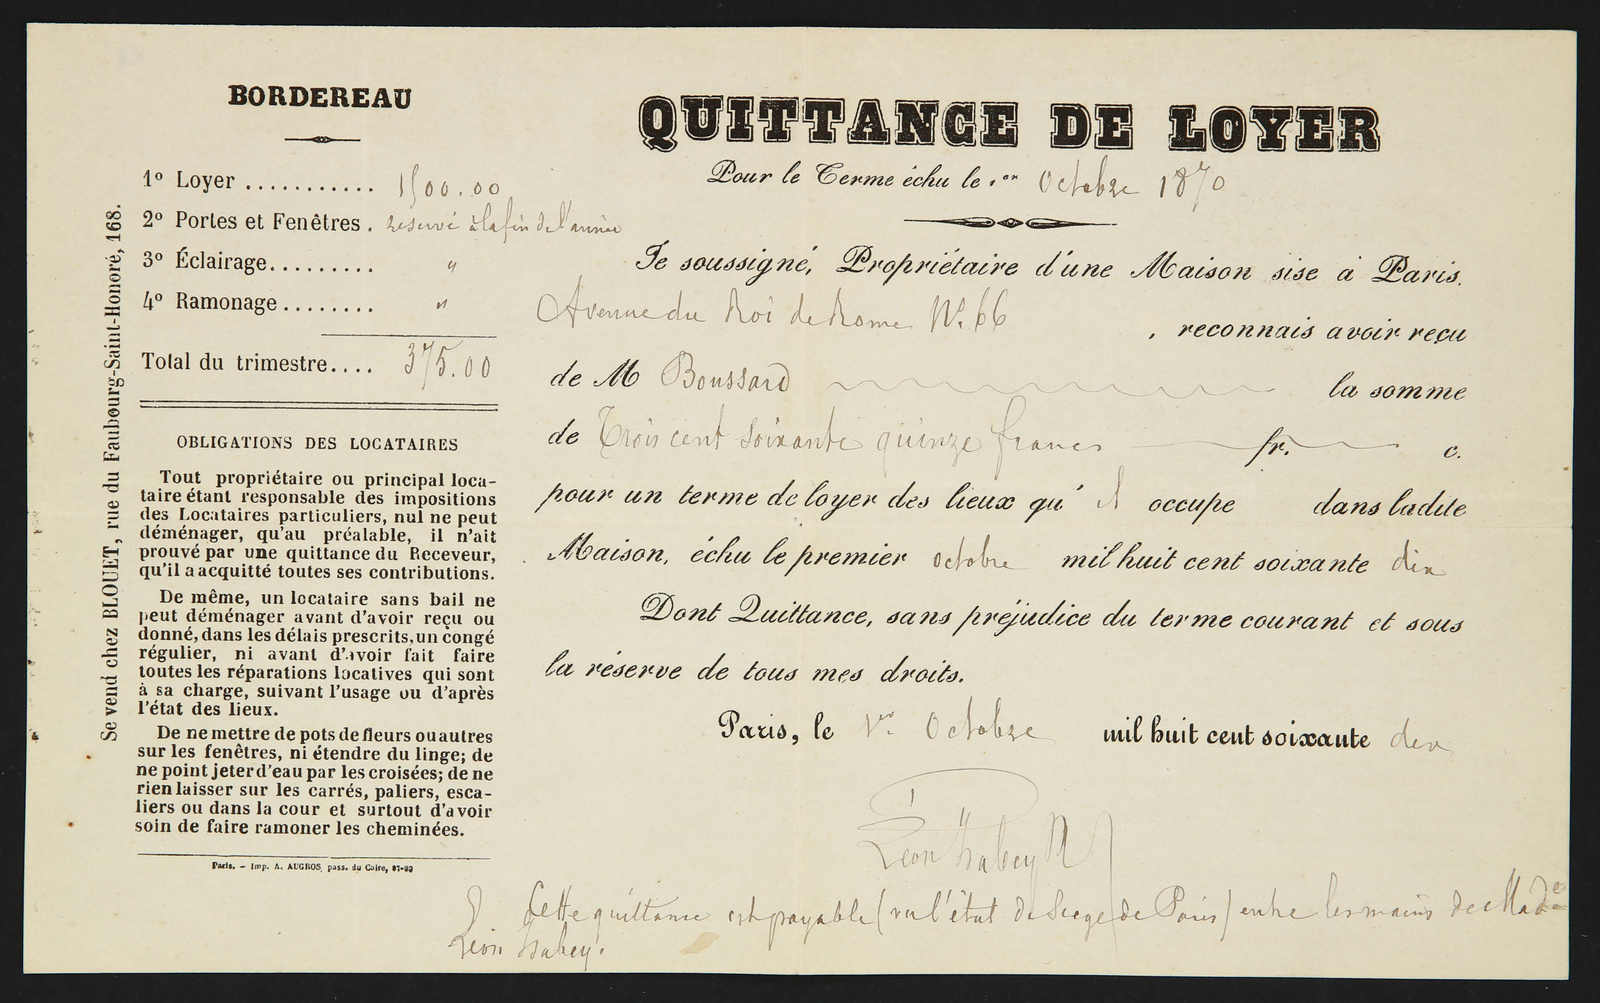 BORDEREAU
1º Loyer ........... 1500.00
2º Portes et Fenêtres . reservé à la fin de l'année
3º Éclairage......... "
4º Ramonage ........ "
Total du trimestre.... 375.00
OBLIGATIONS DES LOCATAIRES
Tout propriétaire ou principal loca-
taire étant responsable des impositions
des Locataires particuliers, nul ne peut
déménager, qu'au préalable, il n'ait
prouvé par une quittance du Receveur,
qu'il a acquitté toutes ses contributions.
De même, un locataire sans bail ne
peut déménager avant d'avoir reçu ou
donné, dans les délais prescrits, un congé
régulier, ni avant d'avoir fait faire
toutes les réparations locatives qui sont
à sa charge, suivant l'usage ou d'après
l'état des lieux.
De ne mettre de pots de fleurs ou autres
sur les fenêtres, ni étendre du linge; de
ne point jeter d'eau par les croisées; de ne
rien laisser sur les carrés, paliers, esca-
liers ou dans la cour et surtout d'avoir
soin de faire ramoner les cheminées.
Paris. — Imp. A. AUGROS, pass. du Caire,
Se vend chez BLOUET, rue du Faubourg-Saint-Honoré, 168.
QUITTANCE DE LOYER
Pour le Terme échu le 1er Octobre 1870
Je soussigné, Propriétaire d'une Maison sise à Paris.
Avenue du Roi de Rome Nº 66 , reconnais avoir reçu
de M Boussard la somme
de Trois cent soixante quinze francs fr. c.
pour un terme de loyer des lieux qu'il occupe dans ladite
Maison, échu le premier octobre mil huit cent soixante dix
Dont Quittance, sans préjudice du terme courant et sous
la réserve de tous mes droits.
Paris, le 1er Octobre mil huit cent soixante dix
Léon Isabey
Cette quittance est payable (vu l'état de Siege de Paris) entre les mains de Made
Léon Isabey.